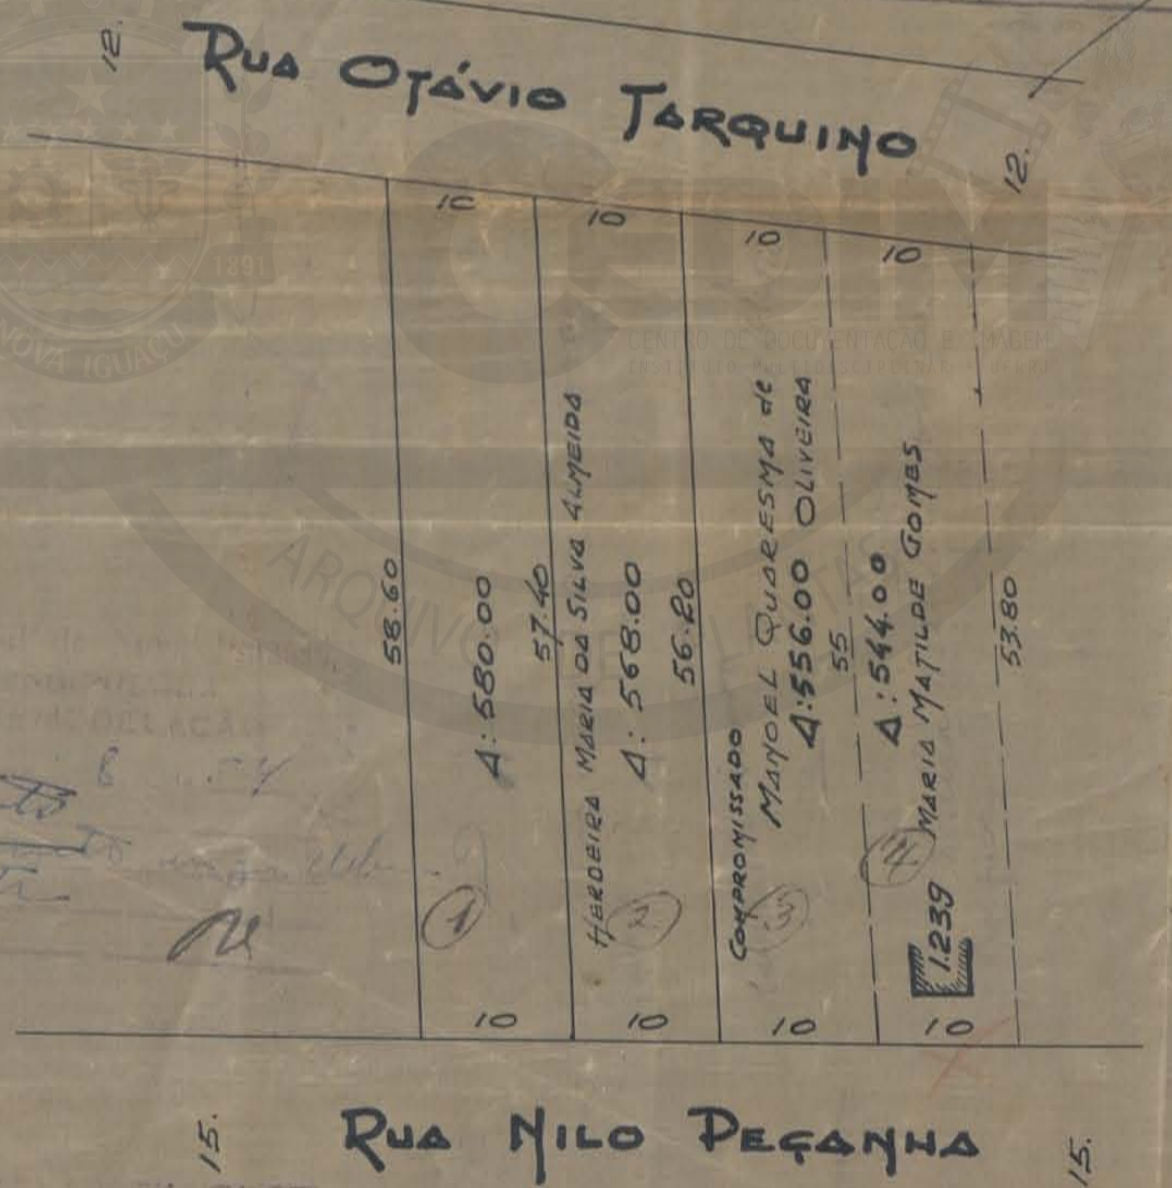 12.
RUA OTÁVIO TARQUINO
12.
10
10
10
10
58.60
A: 580.00
1
57.40
HERDEIRA MARIA DA SILVA ALMEIDA
A: 568.00
2
56.20
COMPROMISSADO
MANOEL QUARESMA de
OLIVEIRA
A: 556.00
3
55
A: 544.00
4
MARIA MATILDE GOMES
1.239
53.80
10
10
10
10
15.
RUA NILO PEÇANHA
15.
1891
NOVA IGUAÇU
CENTRO DE DOCUMENTAÇÃO E IMAGEM
INSTITUTO MULTIDISCIPLINAR - UFRRJ